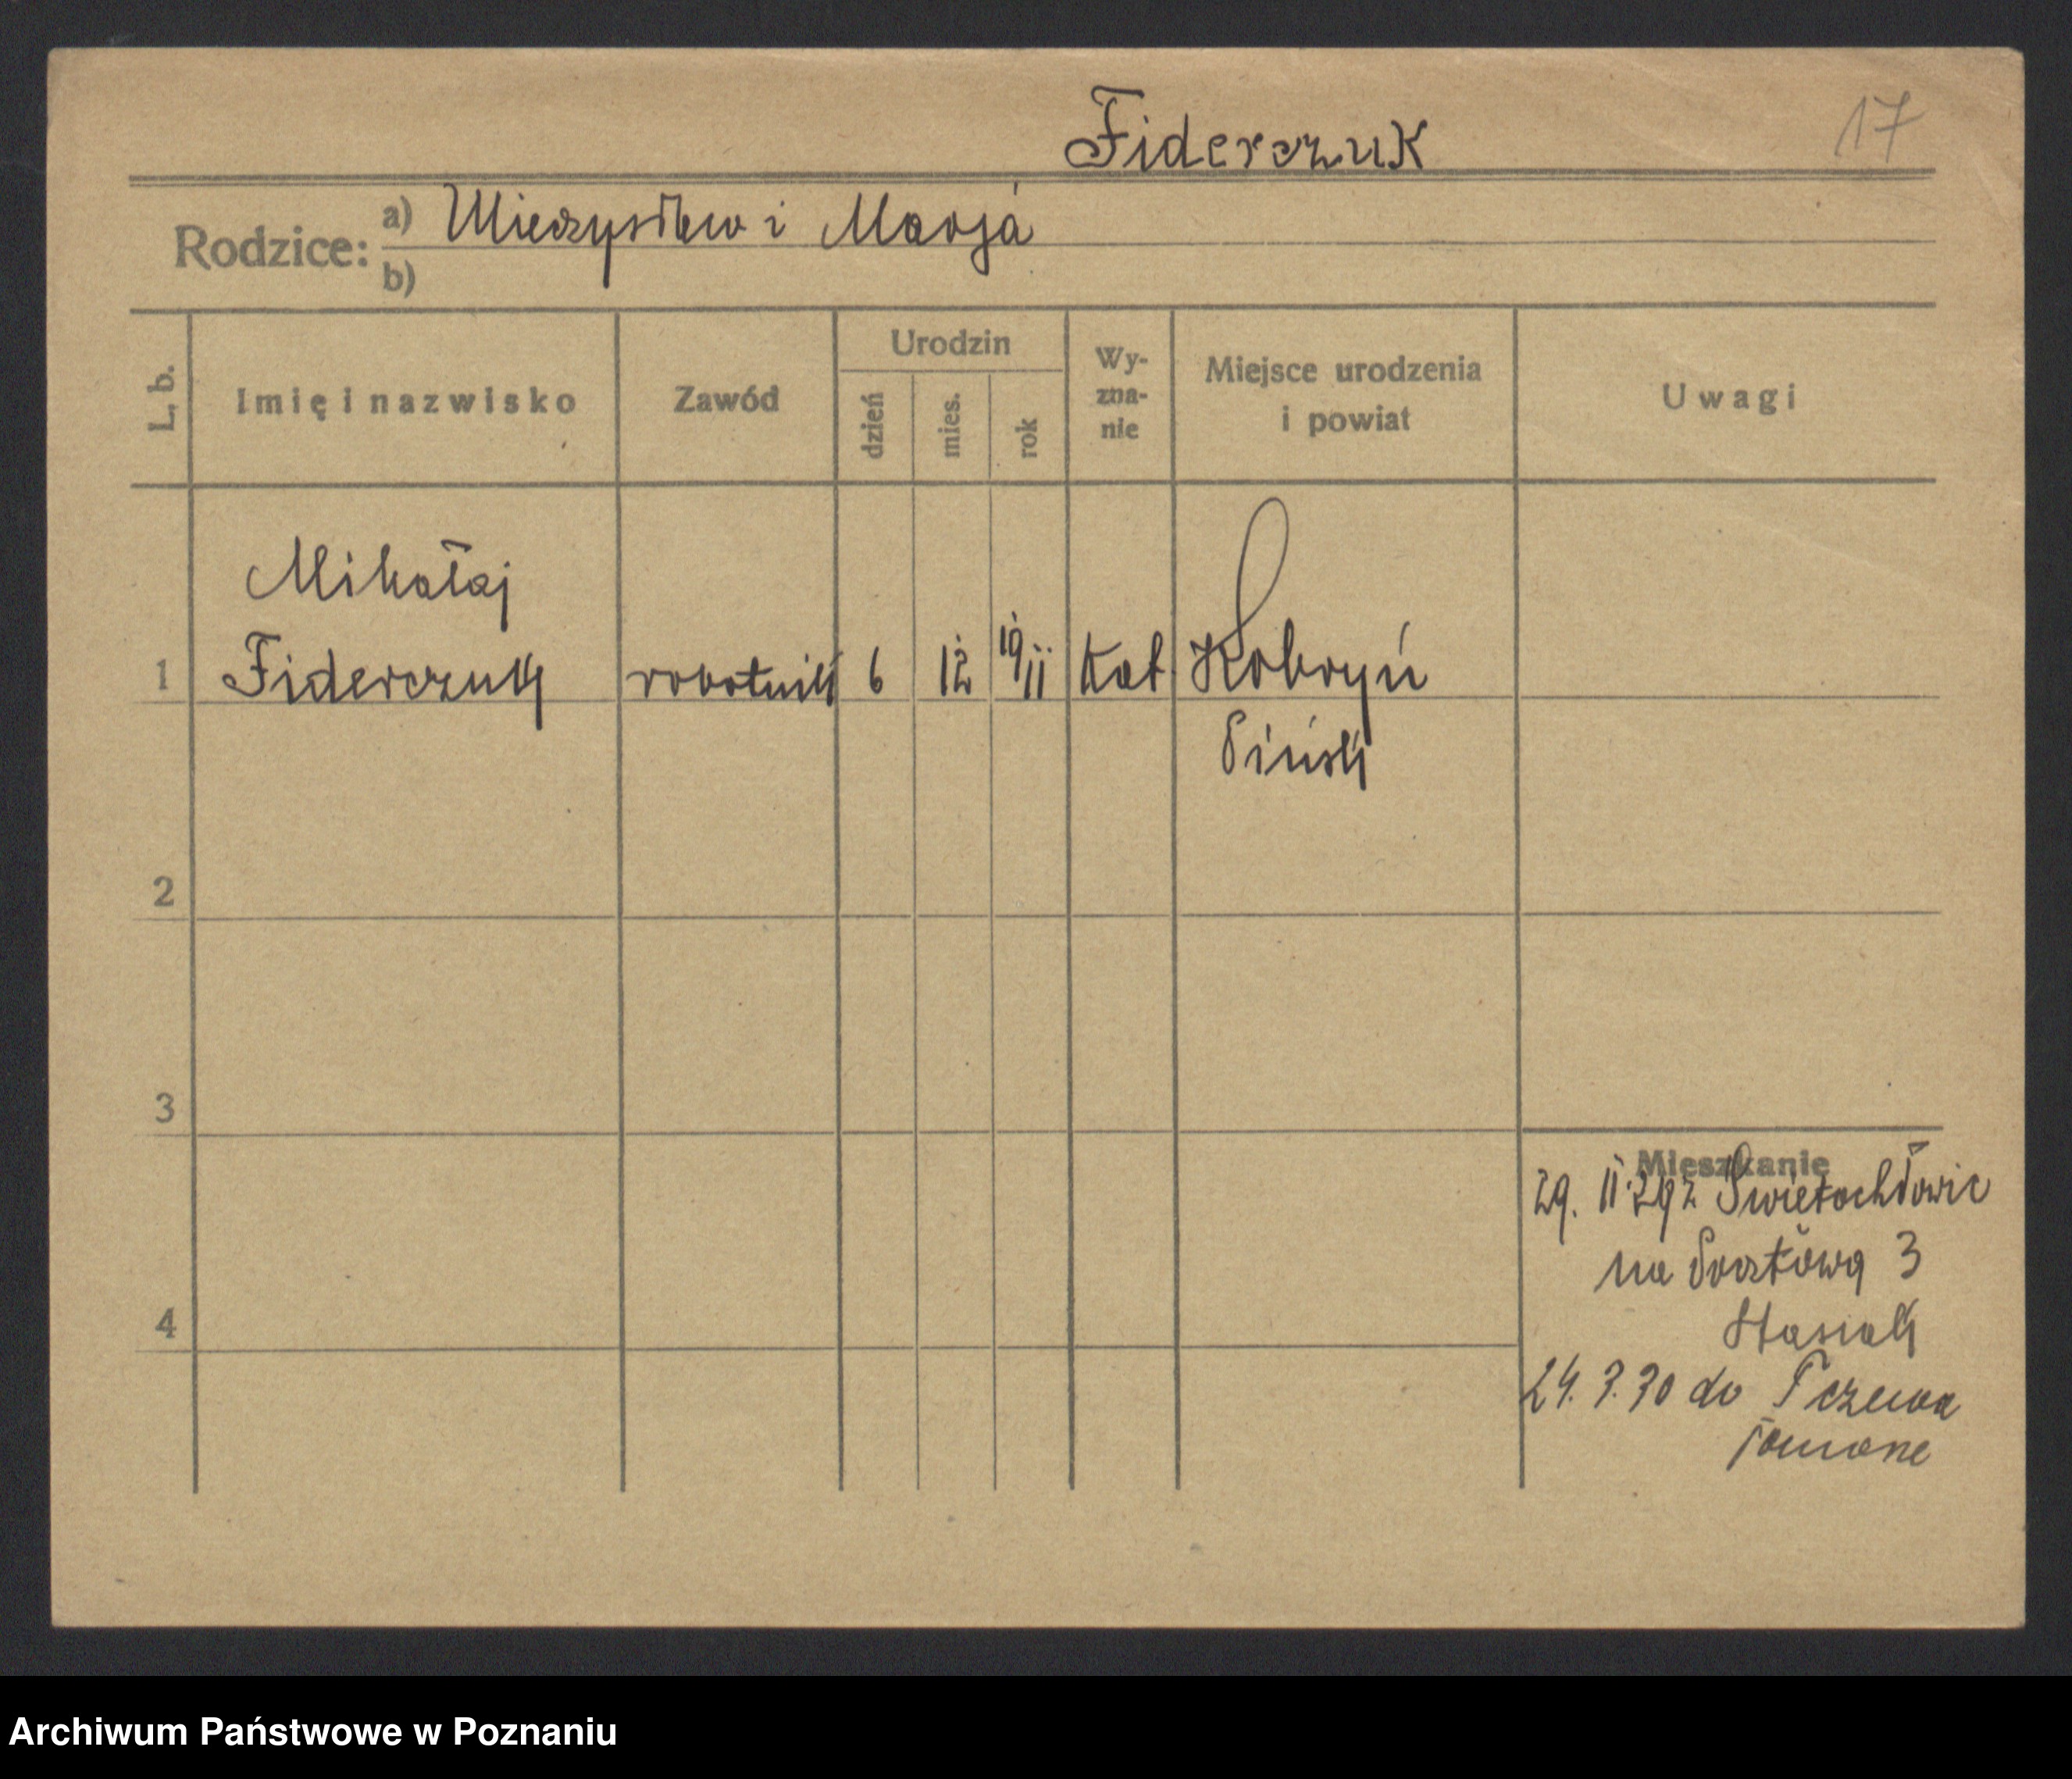 Fiderczuk
17
Rodzice:
a) Mieczysław i Marja
b)
L. b.
Imię i nazwisko
Zawód
Urodzin
dzień
mies.
rok
Wy-
zna-
nie
Miejsce urodzenia
i powiat
Uwagi
Mikołaj
1 Fiderczuk robotnik 6 12 19 11 Kat. Kobryń
Pińsk
2
3
4
Mieszkanie
29. II. Swiętochłowic
na Pocztową 3
Stasiak
24. 3. 30 do Tczewa